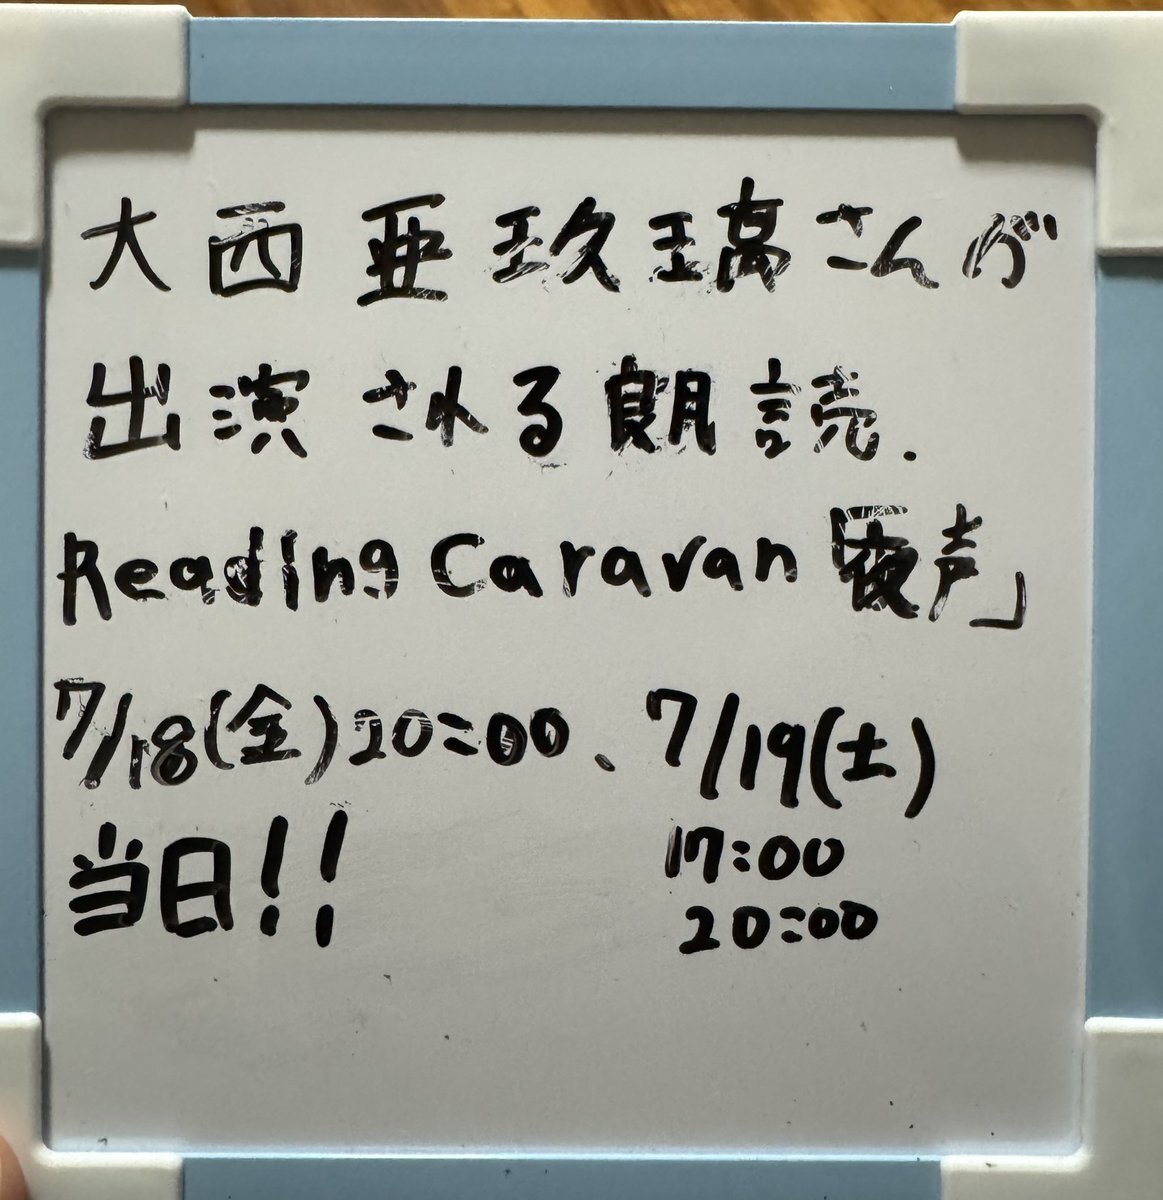 大西亜玖璃さんが
出演される朗読.
Reading Caravan「夜声」
7/18(金)20:00、7/19(土)
当日!! 17:00
20:00